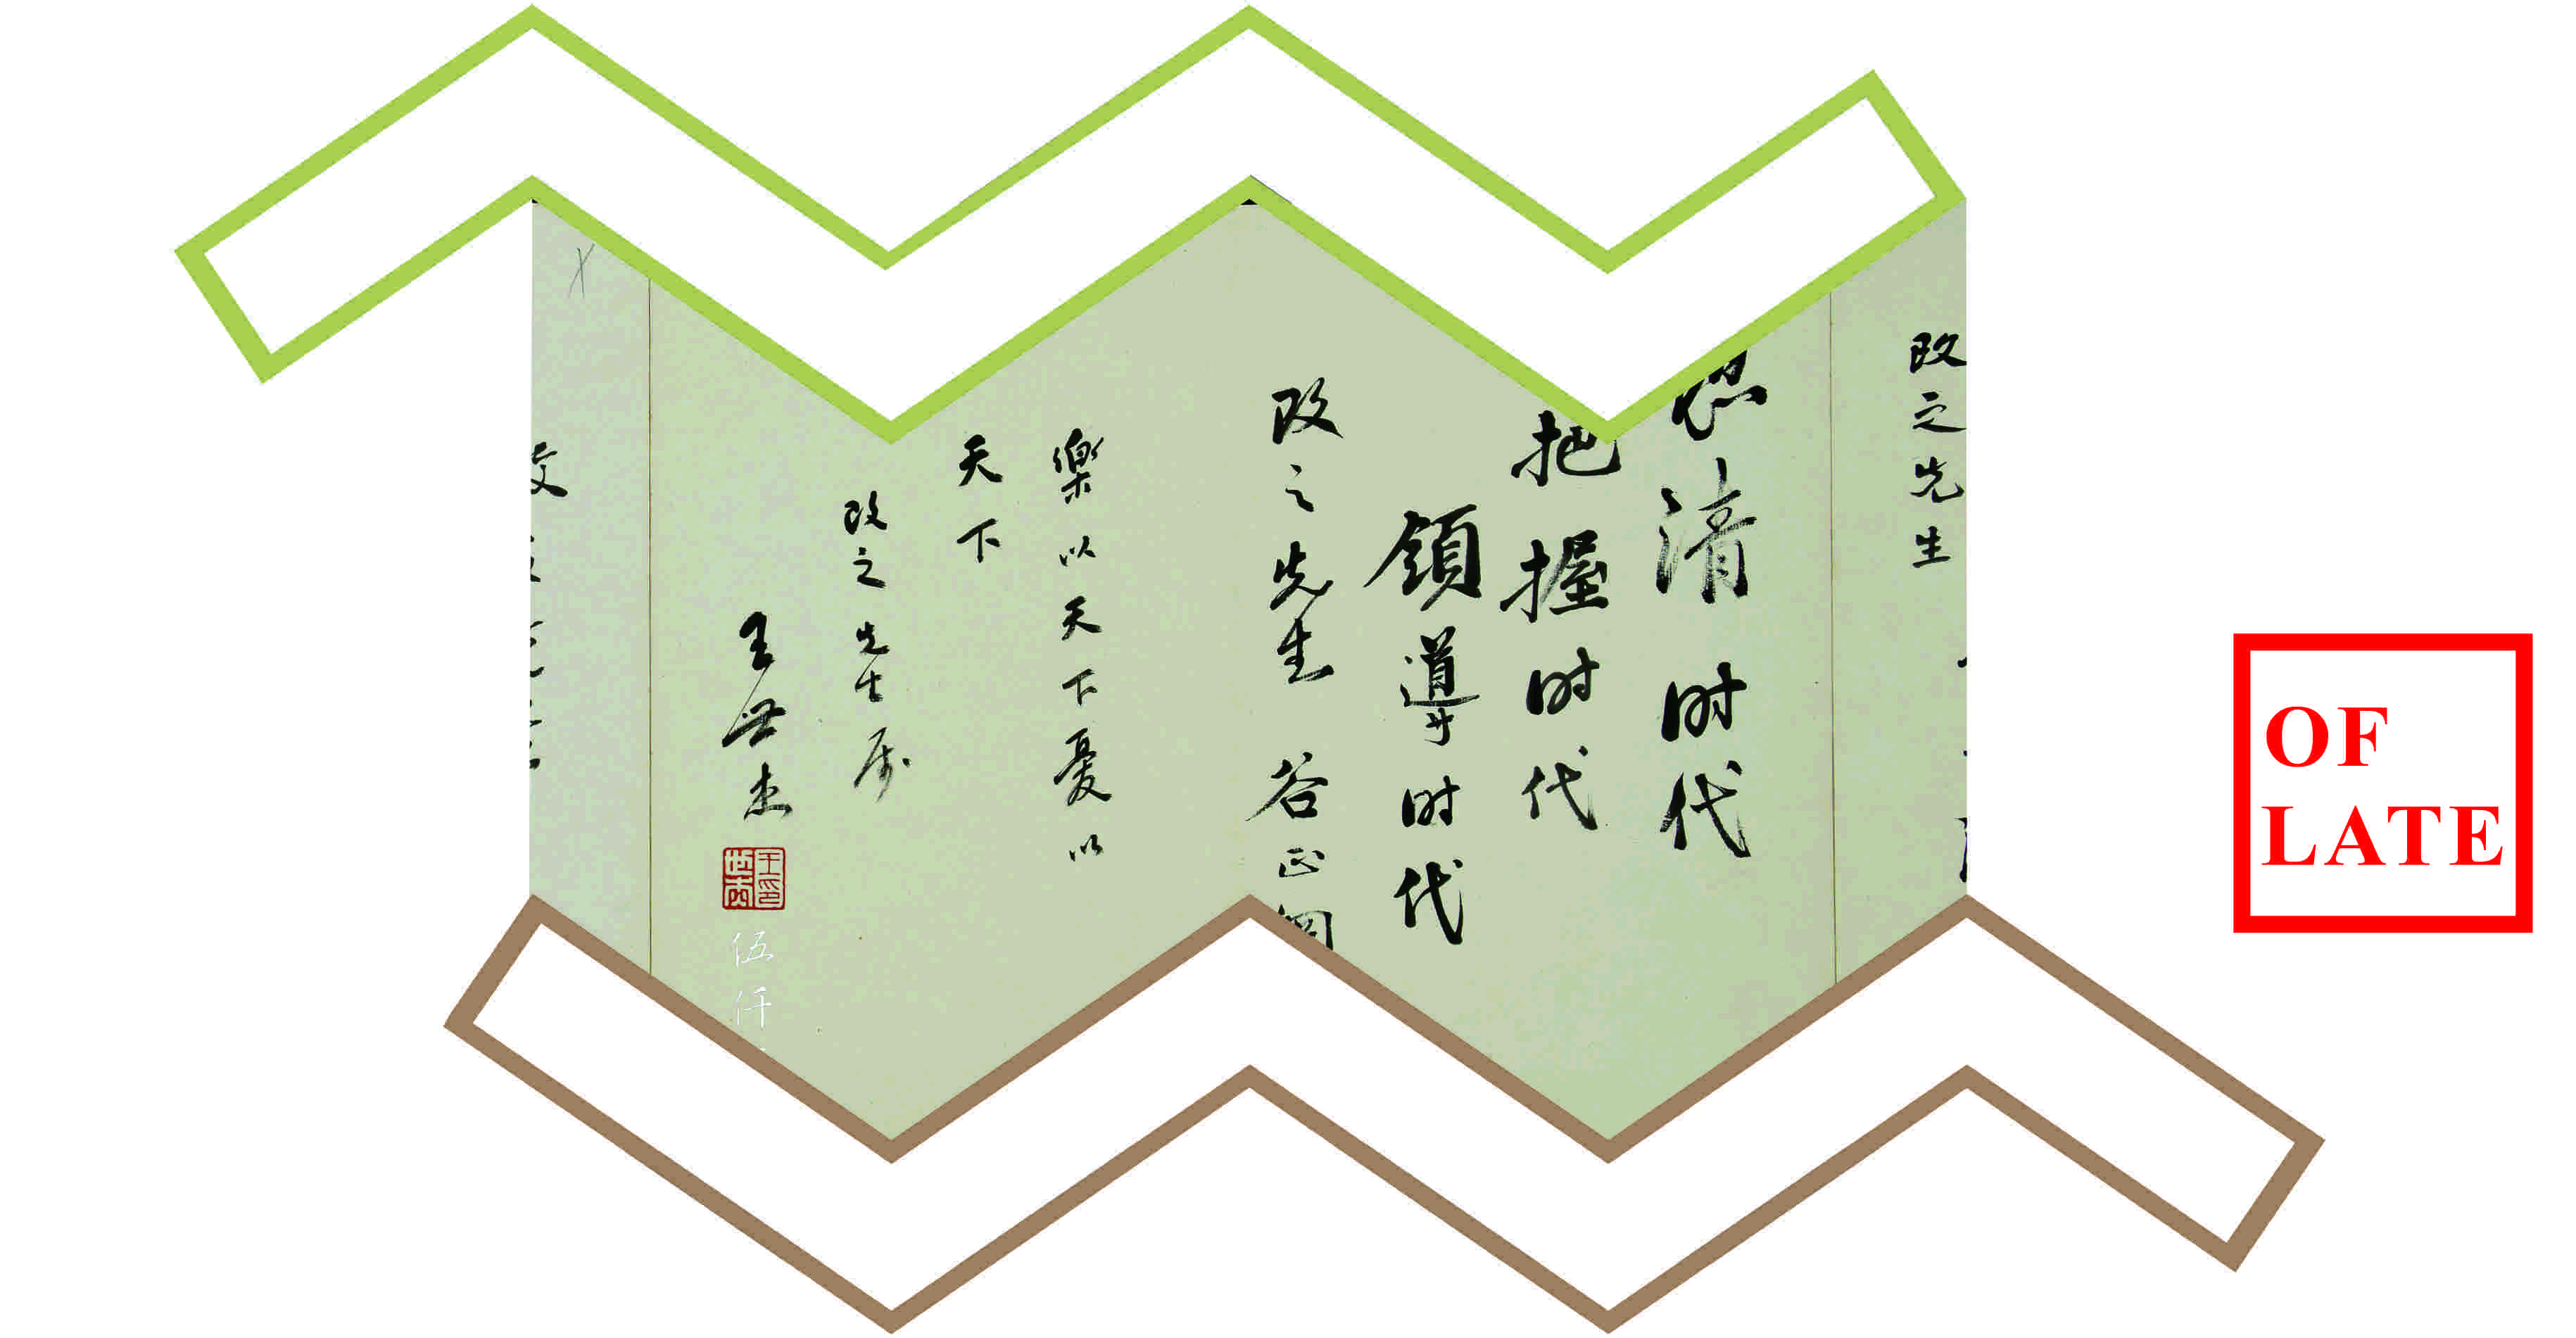 改之先生
清时代
把握时代
領導时代
改之先生 谷正
樂以天下憂以
天下
改之先生属
王世杰
伍仟
OF
LATE